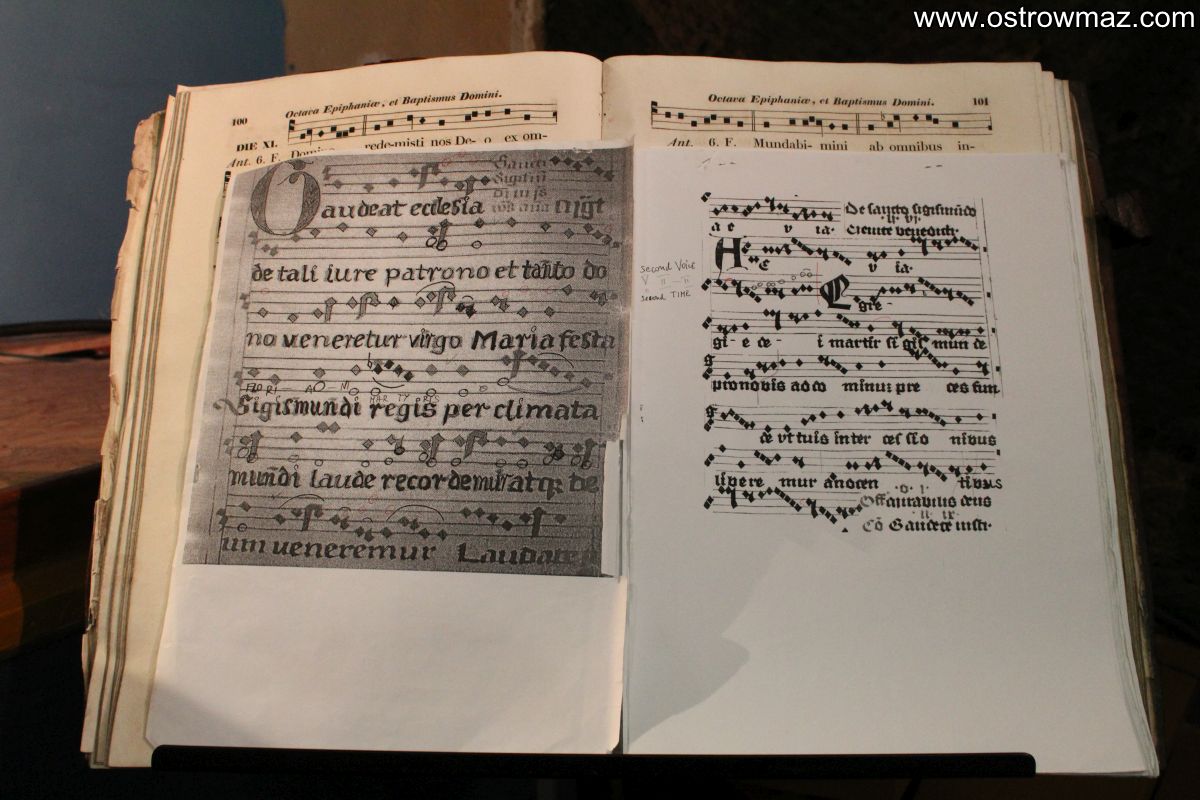 www.ostrowmaz.com
100
Octava Epiphaniæ, et Baptismus Domini.
DIE XI.
Ant. 6. F. Domine rede-misti nos De- o ex om-
Gaudeat ecclesia
de tali iure patrono et do
no veneretur virgo Maria festa
FLORI
Sigismundi regis per climata
mundi laude recordemur atq; de
um veneremur Laudate
Octava Epiphaniæ, et Baptismus Domini.
101
Ant. 6. F. Mundabi- mini ab omnibus in-
De sancto sigismundo
a e v ia.
v ia.
second Voice
second TIME
Egre-
gi- e de- i martir si gis mun de
pro nobis ad do minum pre ces fun
de vt tuis inter ces sio nibus
libere mur
Off mirabilis deus
Gaudete iusti